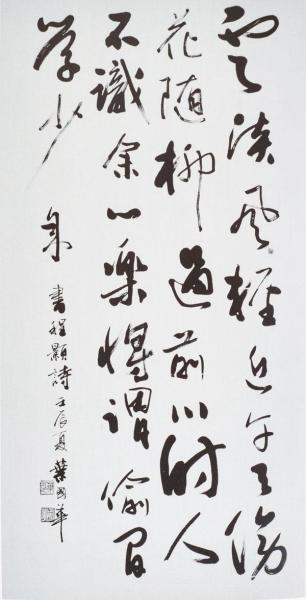 雲淡風輕近午天傍
花随柳過前川时人
不識余心樂將謂偷閒
學少年
書程顥詩壬辰夏葉國華